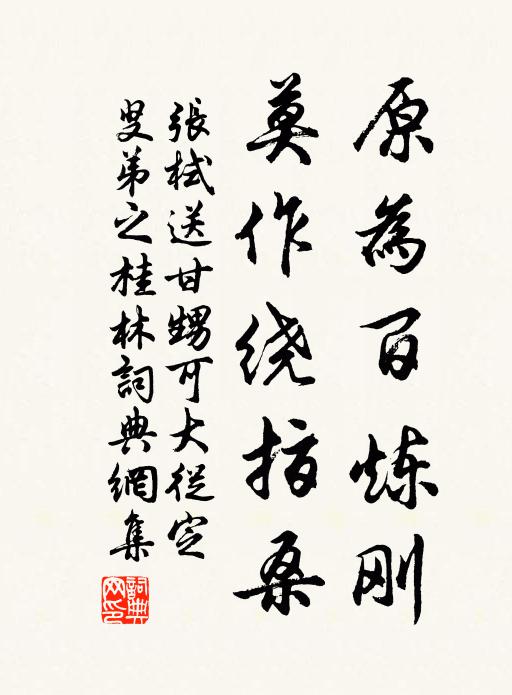 原為百炼刚
莫作绕指柔
張栻送甘甥可大從定
叟弟之桂林詞典網集
詞典
网印